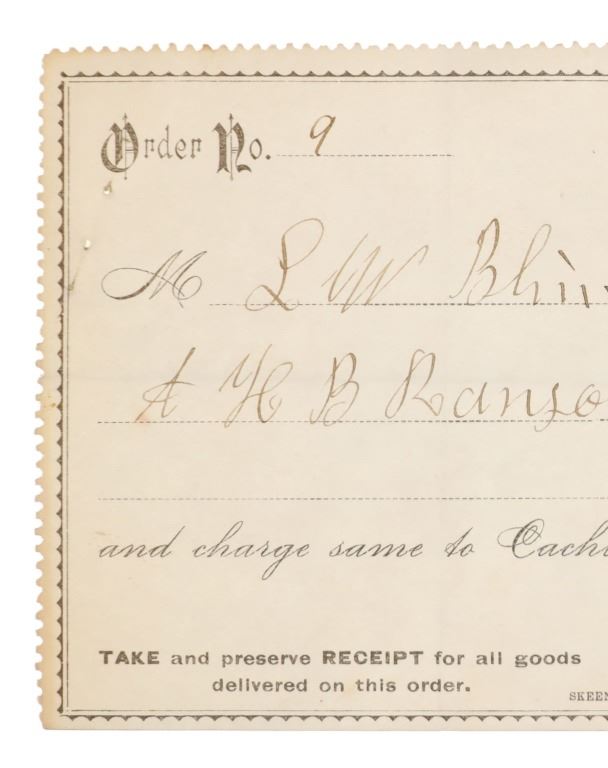 Order No. 9
M L W Blinn
& H B Ranso
and charge same to Cach
TAKE and preserve RECEIPT for all goods
delivered on this order.
SKEEN